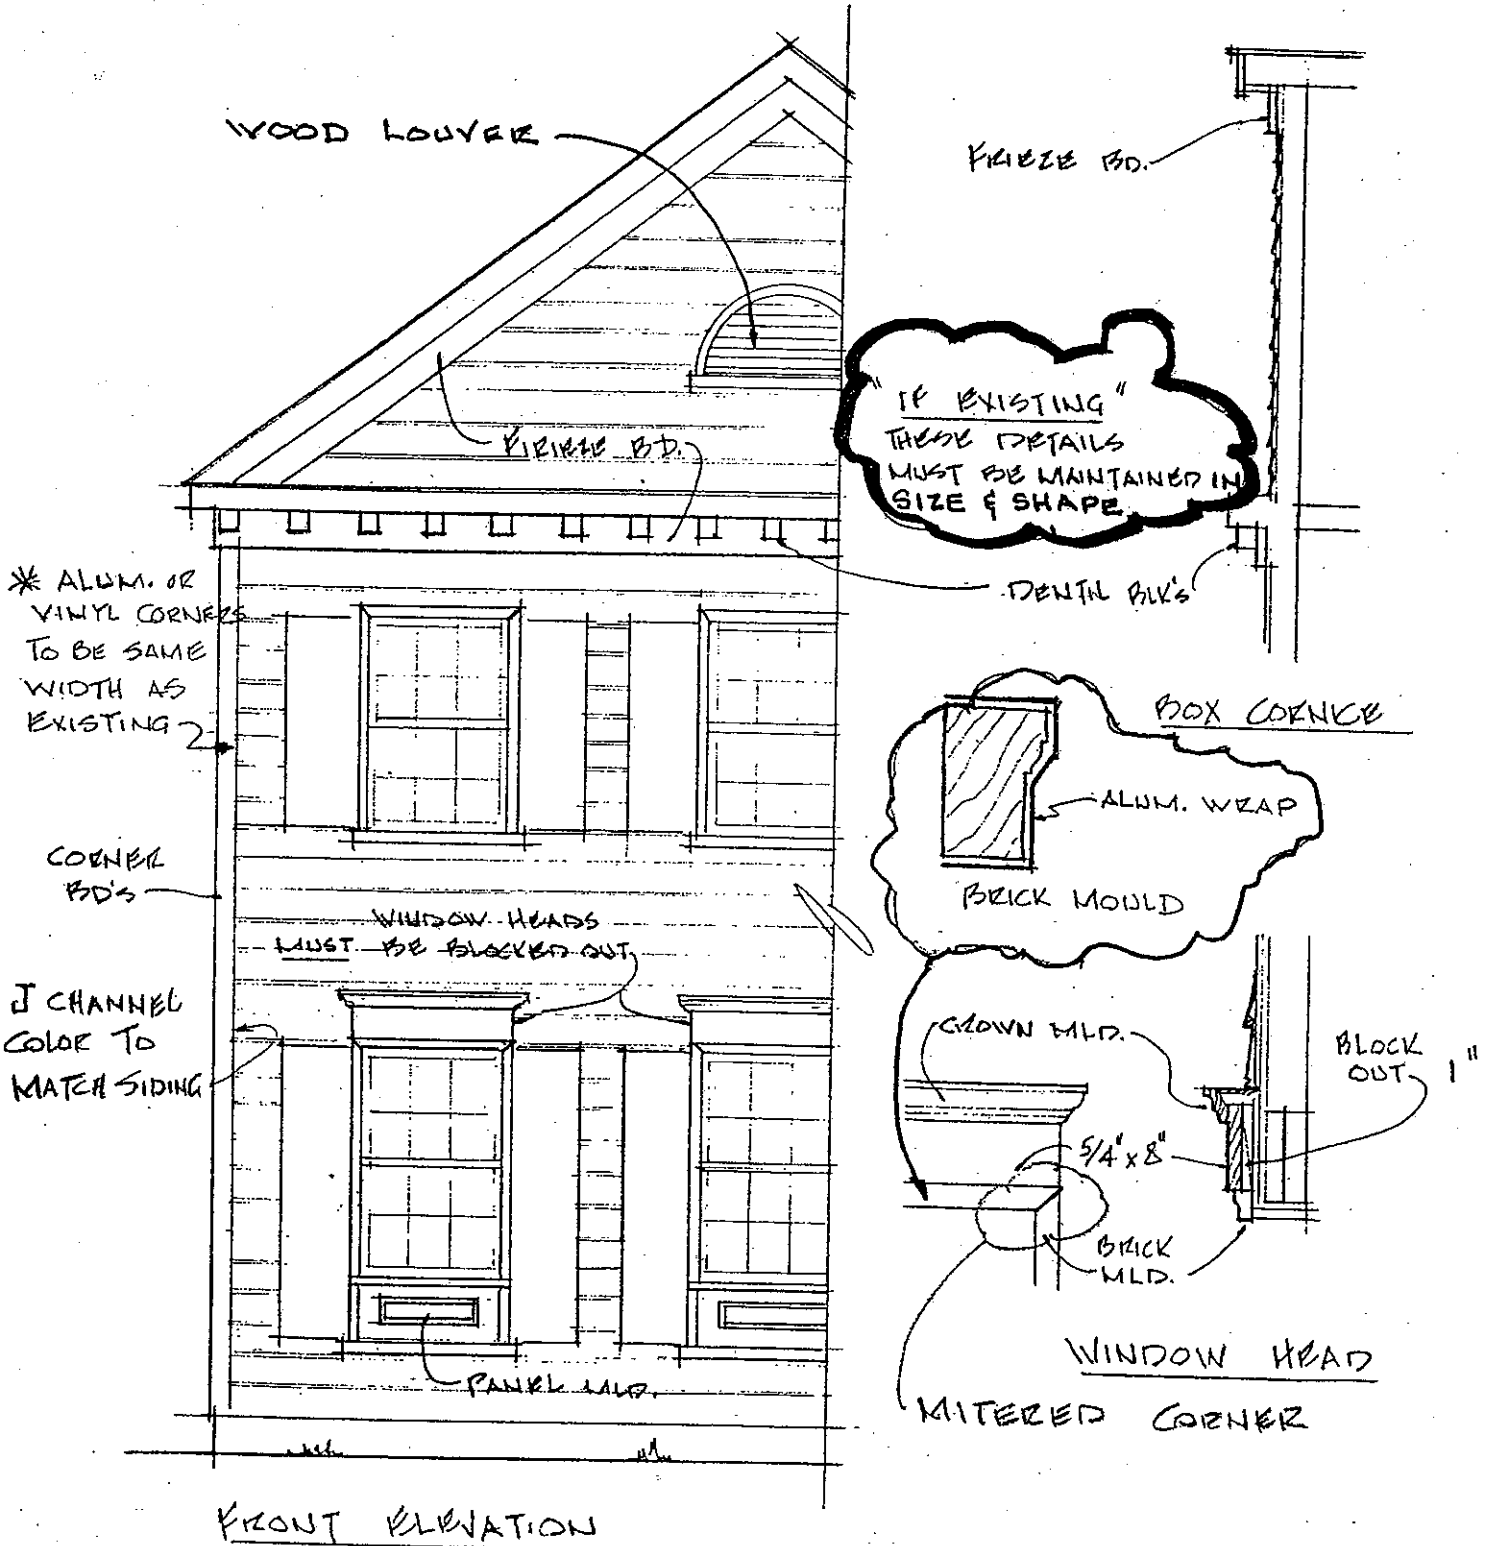 WOOD LOUVER
FRIEZE BD.
"IF EXISTING"
THESE DETAILS
MUST BE MAINTAINED IN
SIZE & SHAPE
FRIEZE BD.
* ALUM. OR
VINYL CORNERS
TO BE SAME
WIDTH AS
EXISTING
DENTIL BLK'S
BOX CORNICE
ALUM. WRAP
BRICK MOULD
CORNER
BD'S
WINDOW HEADS
MUST BE BLOCKED OUT
J CHANNEL
COLOR TO
MATCH SIDING
CROWN MLD.
BLOCK
OUT 1"
5/4" x 8"
BRICK
MLD.
WINDOW HEAD
PANEL MLD.
MITERED CORNER
FRONT ELEVATION